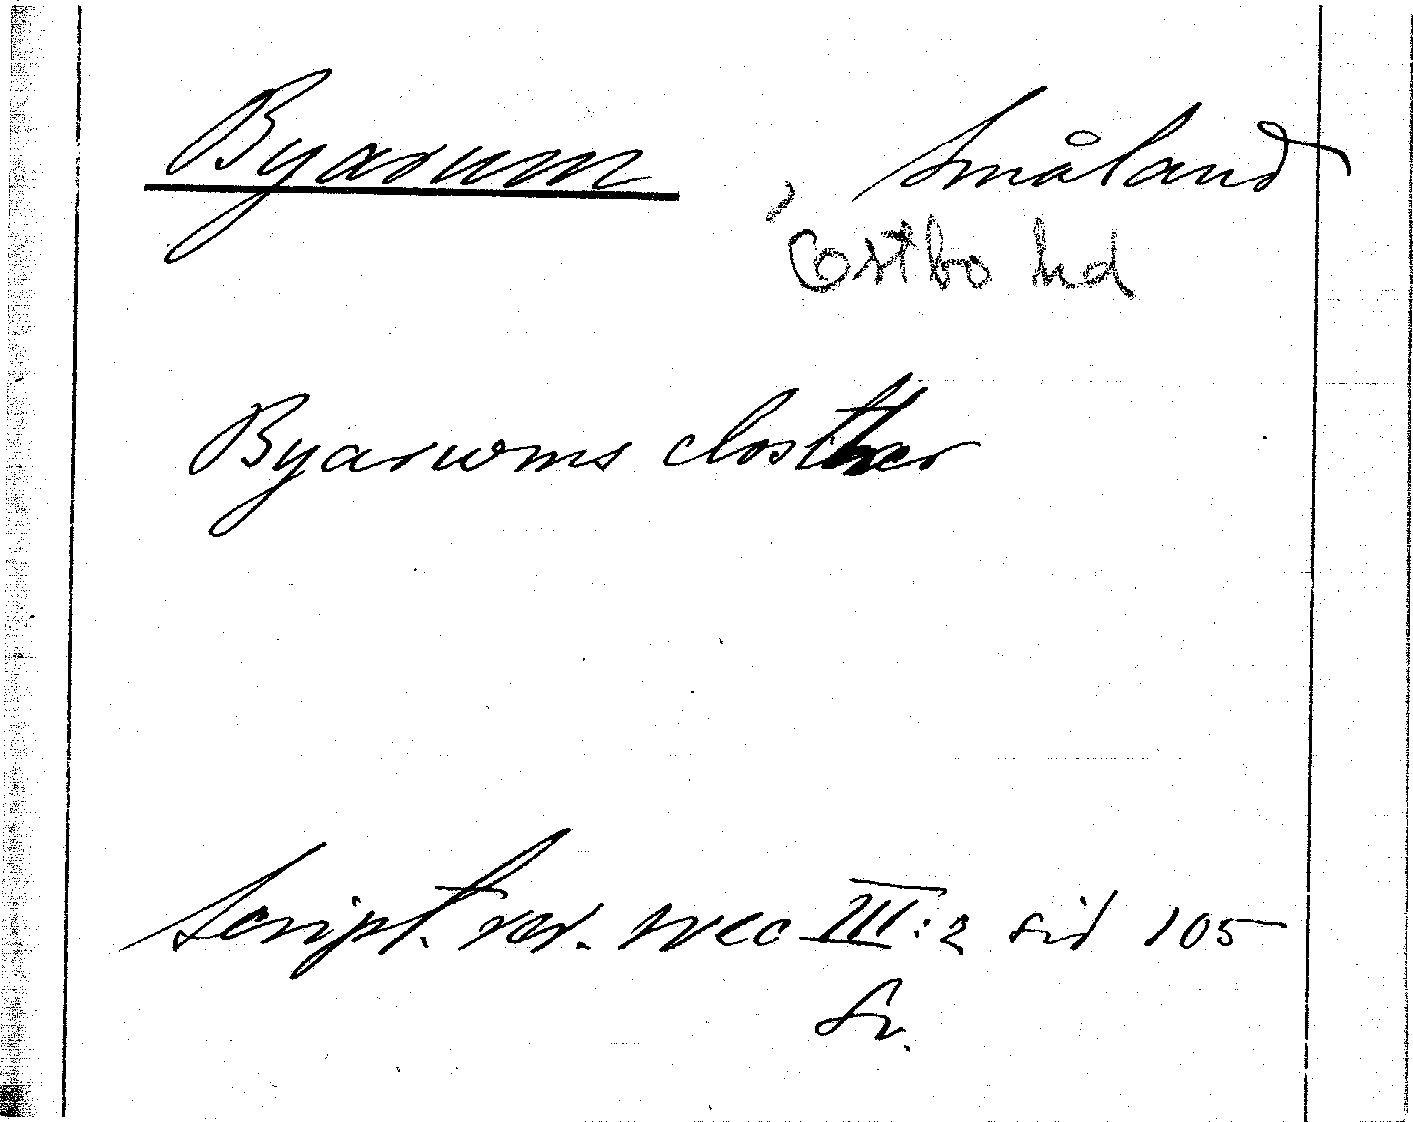 Byarum, Småland
Östbo hd
Byarwms closther
Script. rer. svec III:2 sid 105
Sv.